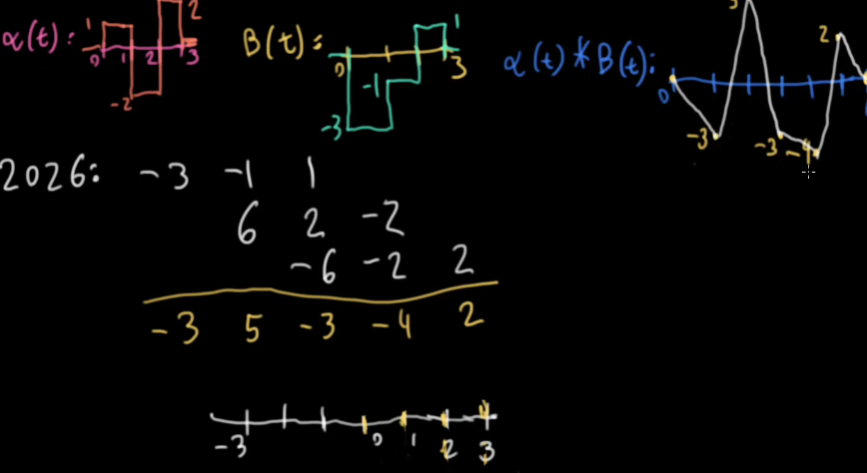 α(t): 1 0 1 2 3 -2 2
B(t): 0 -1 -3 1 3
α(t) * B(t): 0 -3 5 -3 -4 2
2026: -3 -1 1
6 2 -2
-6 -2 2
-3 5 -3 -4 2
-3 0 1 2 3